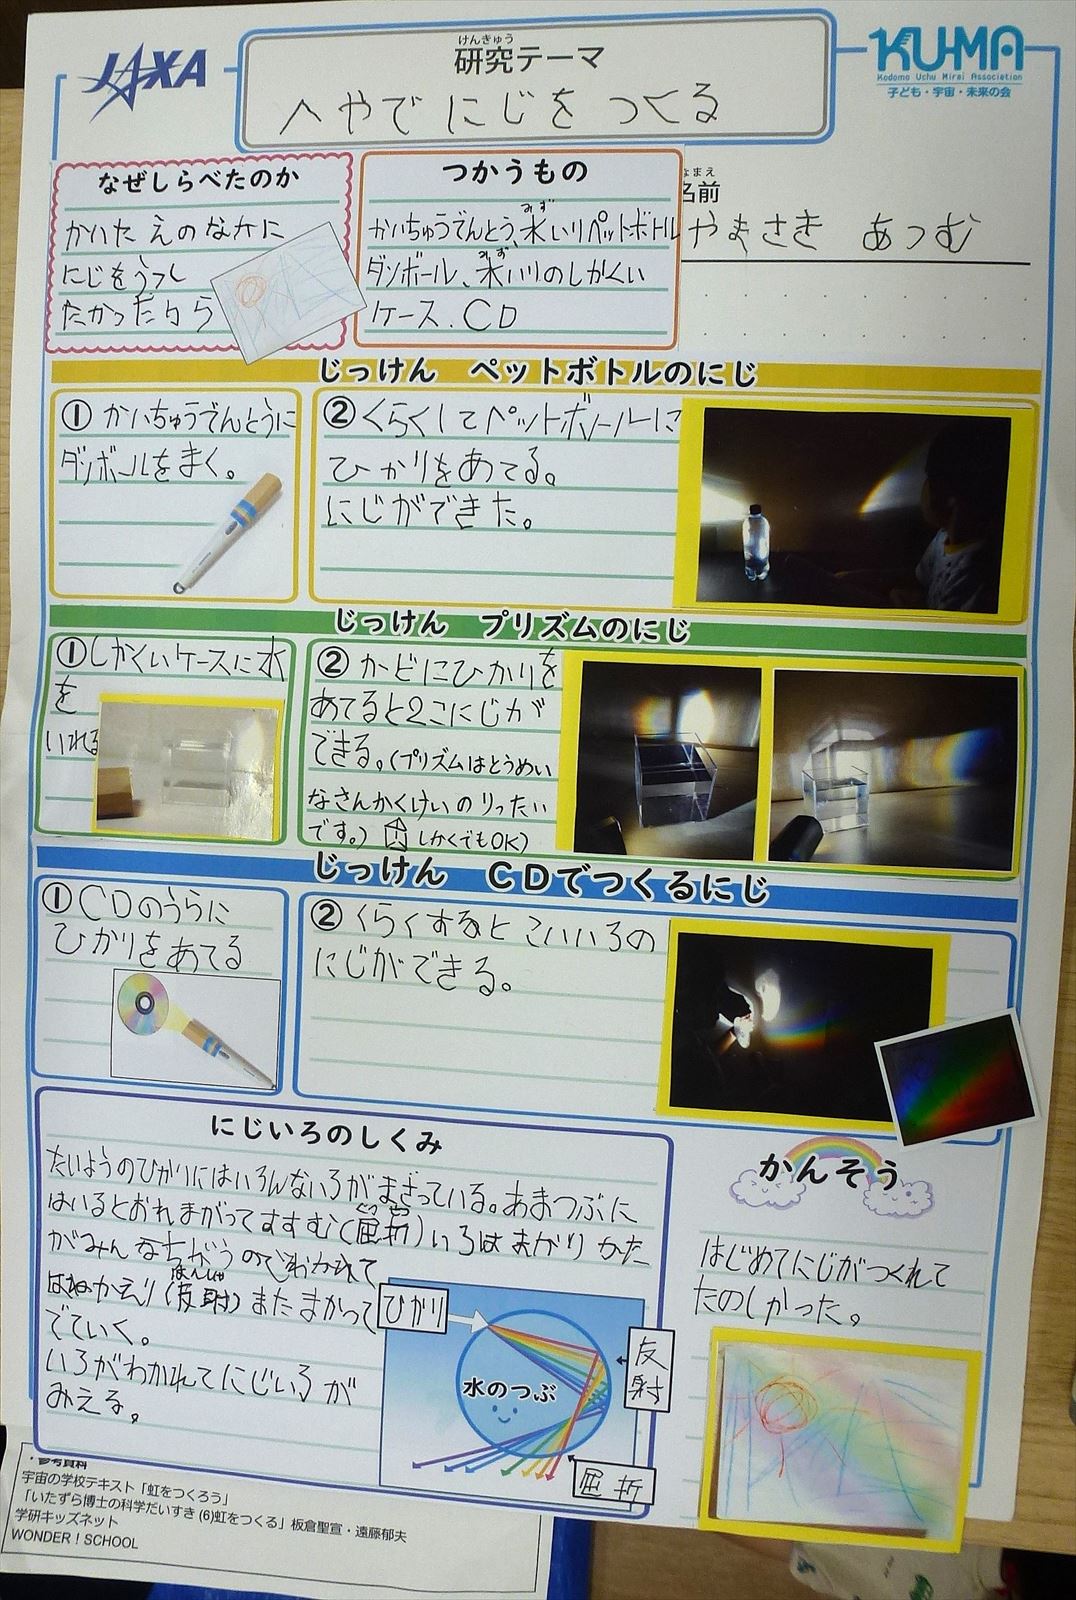 JAXA
けんきゅう
研究テーマ
へやで にじを つくる
KU-MA
Kodomo Uchu Mirai Association
子ども・宇宙・未来の会
なぜしらべたのか
かいた えのなかに
にじをうつし
たかったから
つかうもの
かいちゅうでんとう、水いりペットボトル
みず
ダンボール、水いりのしかくい
みず
ケース、CD
なまえ
名前
やまさき あつむ
じっけん ペットボトルのにじ
① かいちゅうでんとうに
ダンボールをまく。
② くらくしてペットボトルに
ひかりをあてる。
にじができた。
じっけん プリズムのにじ
① しかくいケースに水
を
いれる
② かどにひかりを
あてると2こにじが
できる。(プリズムはとうめい
なさんかくけいのりったい
です。) しかくでもOK)
じっけん CDでつくるにじ
① CDのうらに
ひかりをあてる
② くらくすると こいいろの
にじができる。
にじいろのしくみ
たいようのひかりにはいろんないろがまざっている。あまつぶに
はいるとおれまがってすすむ(屈折)いろは まがりかた
がみんなちがうのでわかれて
はねかえり(反射)またまがって
はんしゃ
でていく。
いろがわかれてにじいろが
みえる。
ひかり
水のつぶ
反射
屈折
かんそう
はじめてにじがつくれて
たのしかった。
・参考資料
宇宙の学校テキスト「虹をつくろう」
「いたずら博士の科学だいすき(6)虹をつくる」板倉聖宣・遠藤郁夫
学研キッズネット
WONDER!SCHOOL